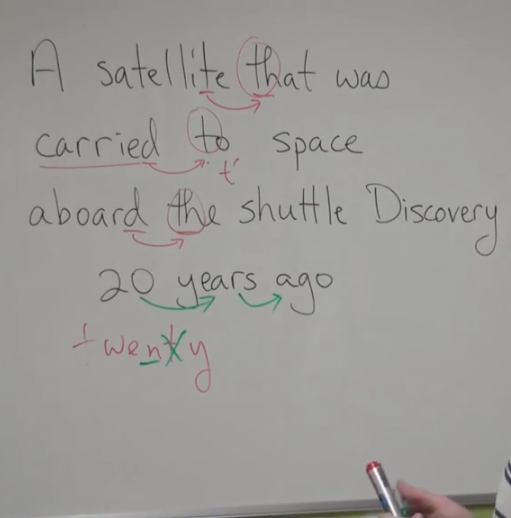 A satellite that was
carried to space
t'
aboard the shuttle Discovery
20 years ago
twenty